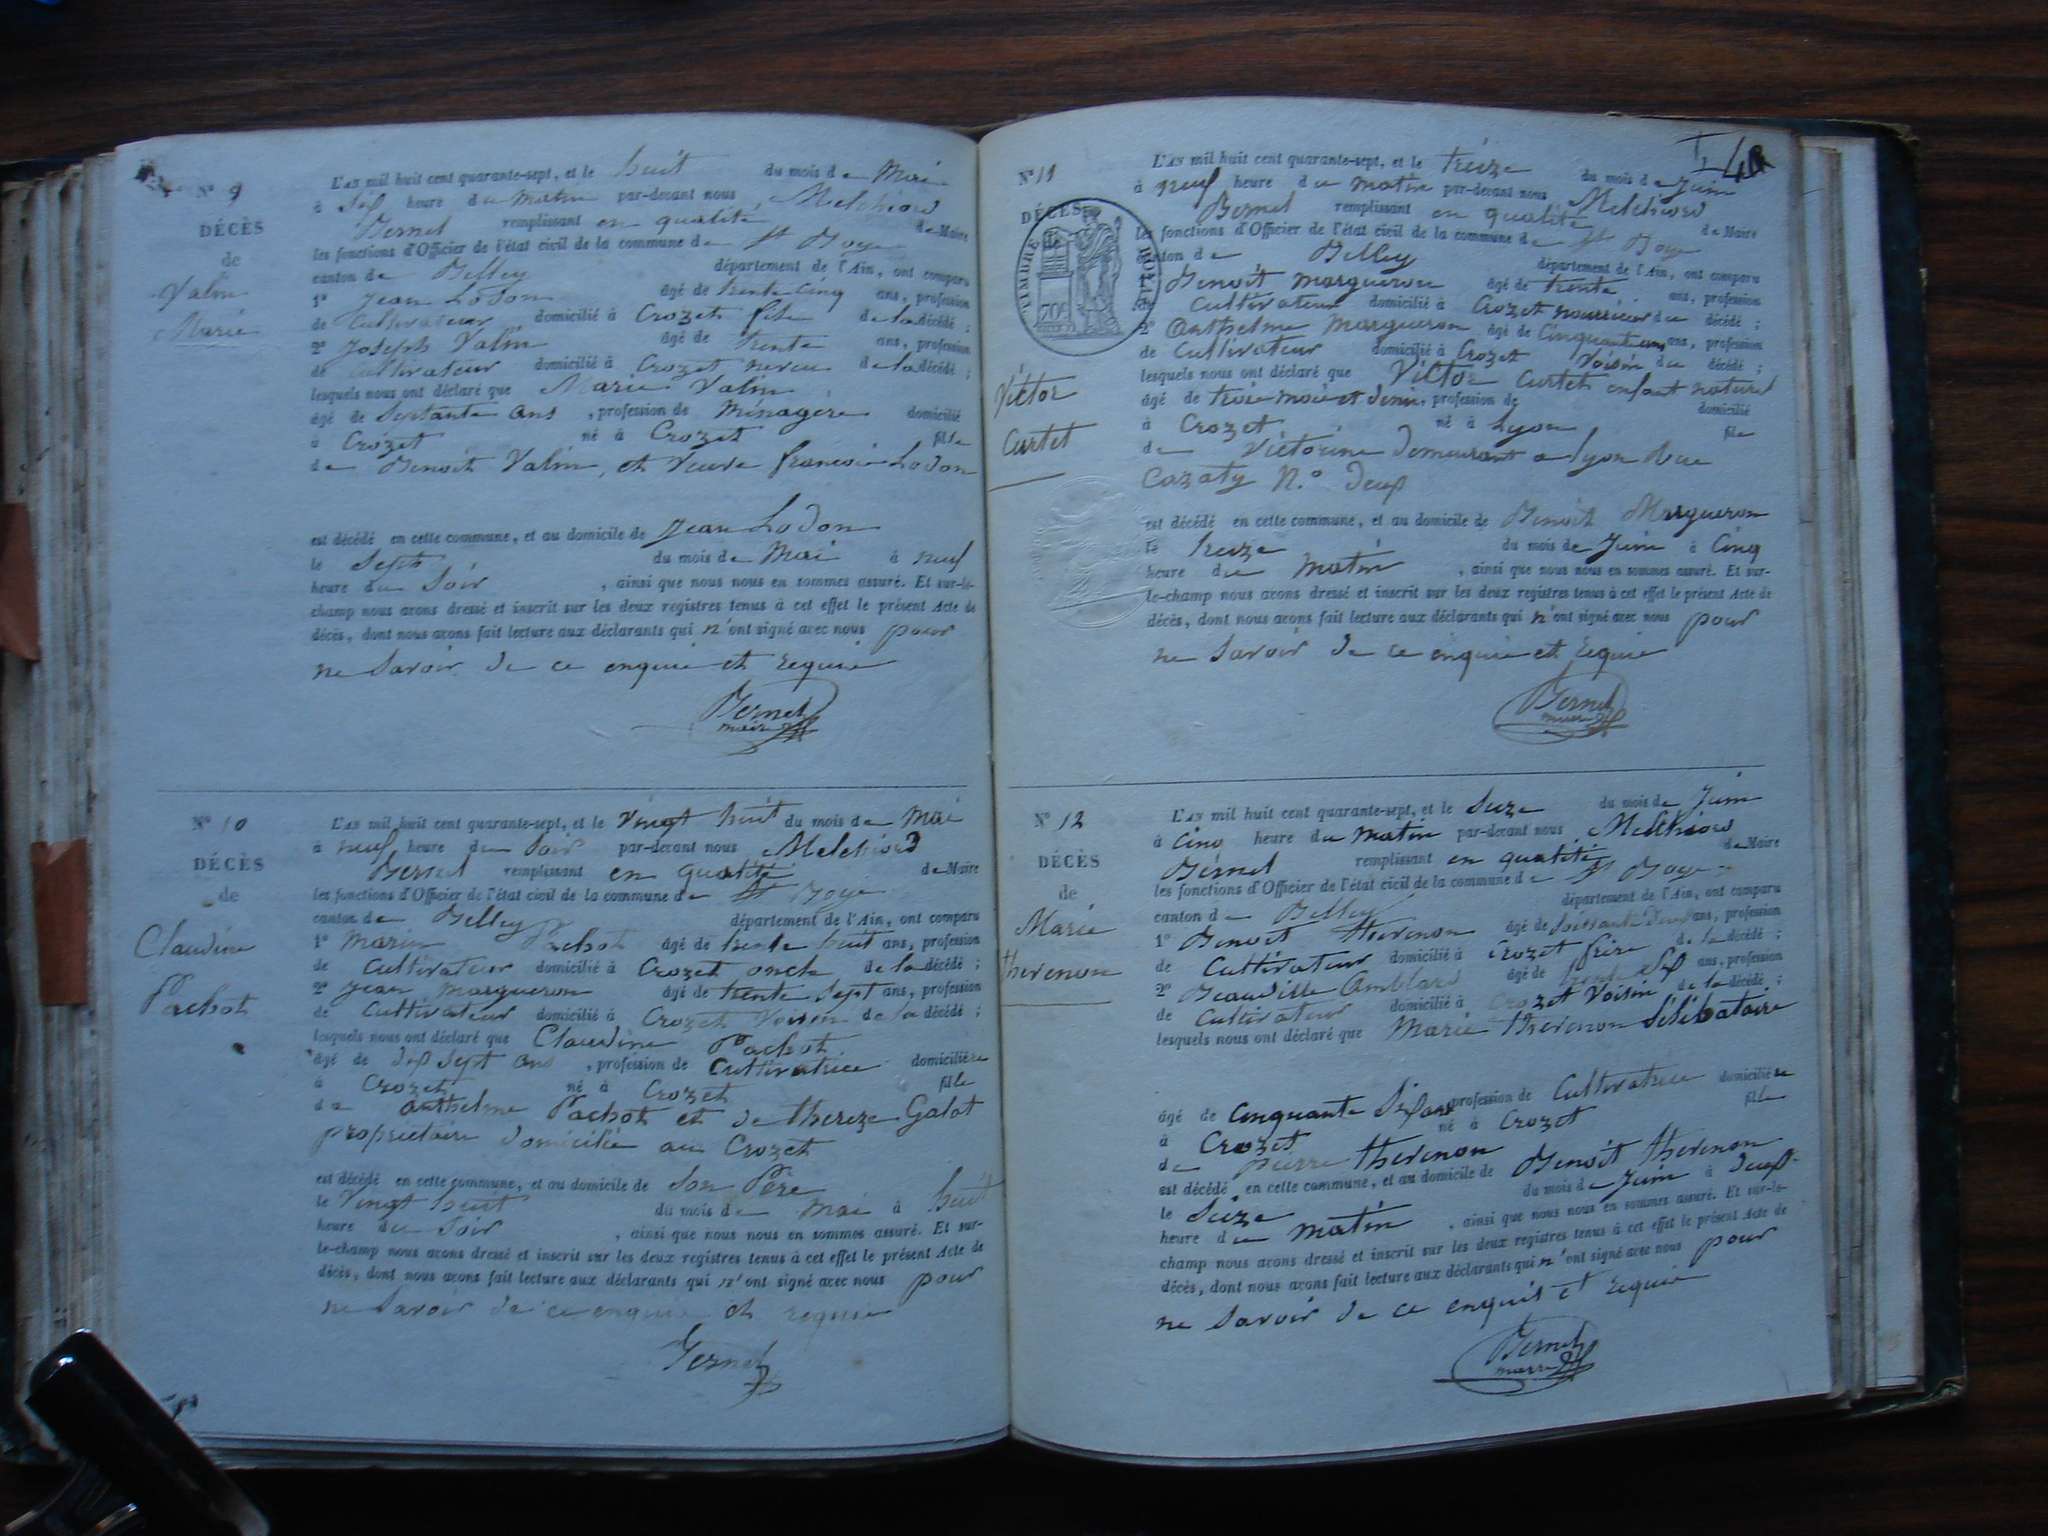 N° 9
DÉCÈS
de
Valin
Marie
L'AN mil huit cent quarante-sept, et le huit du mois de Mai
à six heure du matin par-devant nous Melchiord
Bernel remplissant en qualité de Maire
les fonctions d'Officier de l'état civil de la commune de St Boys
canton de Belley département de l'Ain, ont comparu
1° Jean Lodon âgé de trente cinq ans, profession
de Cultivateur domicilié à Crozet fils de la décédé ;
2° Joseph Valin âgé de trente ans, profession
de Cultivateur domicilié à Crozet neveu de la décédé ;
lesquels nous ont déclaré que Marie Valin
âgé de Soixante ans , profession de Ménagère domicilié
à Crozet né à Crozet fille
de Benoit Valin, et Veuve francois Lodon
est décédé en cette commune, et au domicile de Jean Lodon
le Sept du mois de Mai à neuf
heure du Soir , ainsi que nous nous en sommes assuré. Et sur-le-
champ nous avons dressé et inscrit sur les deux registres tenus à cet effet le présent Acte de
décès, dont nous avons fait lecture aux déclarants qui n'ont signé avec nous pour
ne Savoir de ce enquie et requie
Bernel
maire
N° 10
DÉCÈS
de
Claudine
Pachot
L'AN mil huit cent quarante-sept, et le Vingt huit du mois de Mai
à neuf heure du Soir par-devant nous Melchiord
Bernel remplissant en qualité de Maire
les fonctions d'Officier de l'état civil de la commune de St Boys
canton de Belley département de l'Ain, ont comparu
1° Marin Pachot âgé de trente huit ans, profession
de Cultivateur domicilié à Crozet oncle de la décédé ;
2° Jean Margueron âgé de trente Sept ans, profession
de Cultivateur domicilié à Crozet Voisin de la décédé ;
lesquels nous ont déclaré que Claudine Pachot
âgé de dix Sept ans , profession de Cultivatrice domicilière
à Crozet né à Crozet fille
de anthelme Pachot et de thereze Galot
propriétaire domicilié au Crozet
est décédé en cette commune, et au domicile de Son Père
le Vingt huit du mois de Mai à huit
heure du Soir , ainsi que nous nous en sommes assuré. Et sur-
le-champ nous avons dressé et inscrit sur les deux registres tenus à cet effet le présent Acte de
décès, dont nous avons fait lecture aux déclarants qui n'ont signé avec nous pour
ne Savoir de ce enquie et requie
Bernel
N° 11
DÉCÈS
TIMBRE ROYAL
Victor
Curtet
L'AN mil huit cent quarante-sept, et le treize du mois de Juin
à neuf heure du matin par-devant nous Melchiord
Bernel remplissant en qualité de Maire
les fonctions d'Officier de l'état civil de la commune de St Boys
canton de Belley département de l'Ain, ont comparu
Benoit Margueron âgé de trente ans, profession
de Cultivateur domicilié à Crozet nourricier du décédé ;
2° Anthelme Margueron âgé de Cinquante ans, profession
de Cultivateur domicilié à Crozet Voisin du décédé ;
lesquels nous ont déclaré que Victor Curtet enfant naturel
âgé de trois mois et demi, profession de domicilié
à Crozet né à Lyon fils
de Victorine demeurant a lyon Rue
Cazaty N.° deux
est décédé en cette commune, et au domicile de Benoit Margueron
le treize du mois de Juin à Cinq
heure du Matin , ainsi que nous nous en sommes assuré. Et sur-
le-champ nous avons dressé et inscrit sur les deux registres tenus à cet effet le présent Acte de
décès, dont nous avons fait lecture aux déclarants qui n'ont signé avec nous pour
ne Savoir de ce enquie et requie
Bernel
maire
N° 12
DÉCÈS
de
Marie
thevenon
L'AN mil huit cent quarante-sept, et le Seize du mois de Juin
à Cinq heure du matin par-devant nous Melchiord
Bernel remplissant en qualité de Maire
les fonctions d'Officier de l'état civil de la commune de St Boys
canton de Belley département de l'Ain, ont comparu
1° Benoit thevenon âgé de Soissante ans, profession
de Cultivateur domicilié à Crozet frère de la décédé ;
2° Beauville Amblard âgé de trente Six ans, profession
de Cultivateur domicilié à Crozet Voisin de la décédé ;
lesquels nous ont déclaré que Marie thevenon Célibataire
âgé de Cinquante Six ans profession de Cultivatrice domicilière
à Crozet né à Crozet fille
de pierre thevenon
est décédé en cette commune, et au domicile de Benoit thevenon
le Seize du mois de Juin à deux
heure du matin , ainsi que nous nous en sommes assuré. Et sur-le-
champ nous avons dressé et inscrit sur les deux registres tenus à cet effet le présent Acte de
décès, dont nous avons fait lecture aux déclarants qui n'ont signé avec nous pour
ne Savoir de ce enquit et requie
Bernel
maire